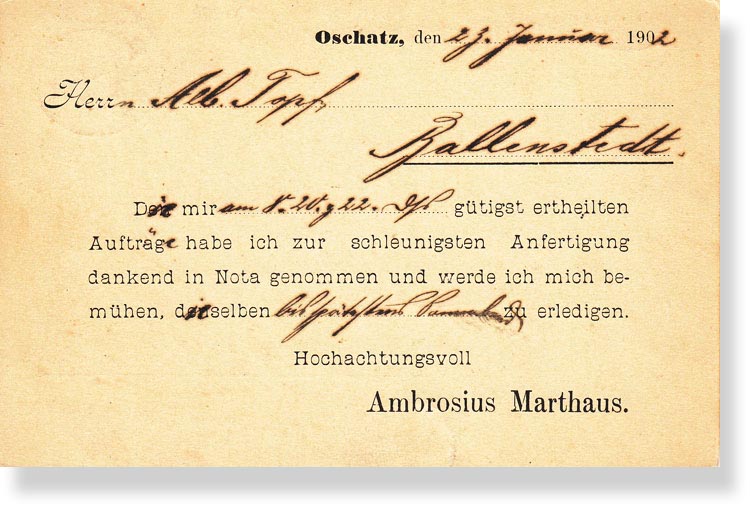 Oschatz, den 23. Januar 1902
Herrn Alb. Topf,
Ballenstedt.
Die mir am 8. 20. & 22. ds. gütigst ertheilten
Aufträge habe ich zur schleunigsten Anfertigung
dankend in Nota genommen und werde ich mich be-
mühen, dieselben bis spätestens zu erledigen.
Hochachtungsvoll
Ambrosius Marthaus.